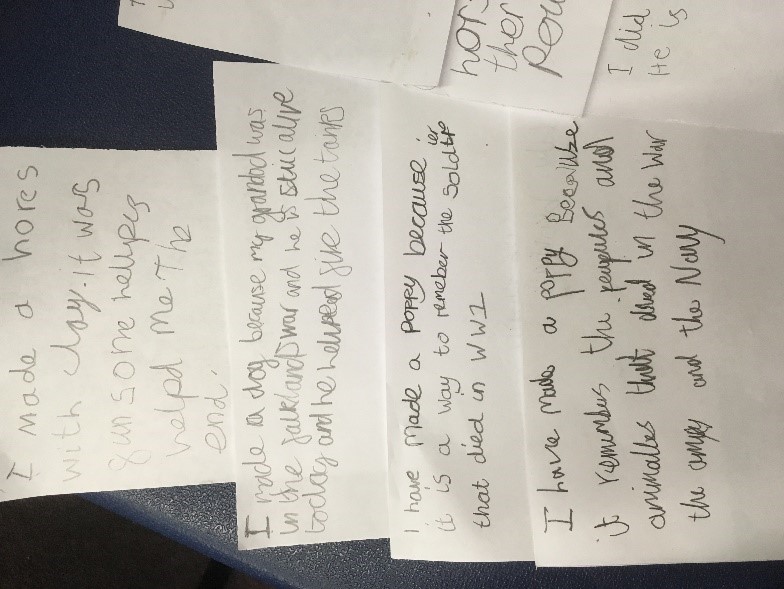 I made a hores
with clay. it was
fun some helpes
helpd me The
end.
I made a dog because my grandad was
in the falklands war and he is still alive
today and he helped give the tanks
I have made a poppy because
it is a way to remeber the soldier
that died in WW1
I have made a poppy Becaulse
it remembes the peopules and
animalles that died in the war
the amy and the Navy
hors
ther
peou
I did
He is